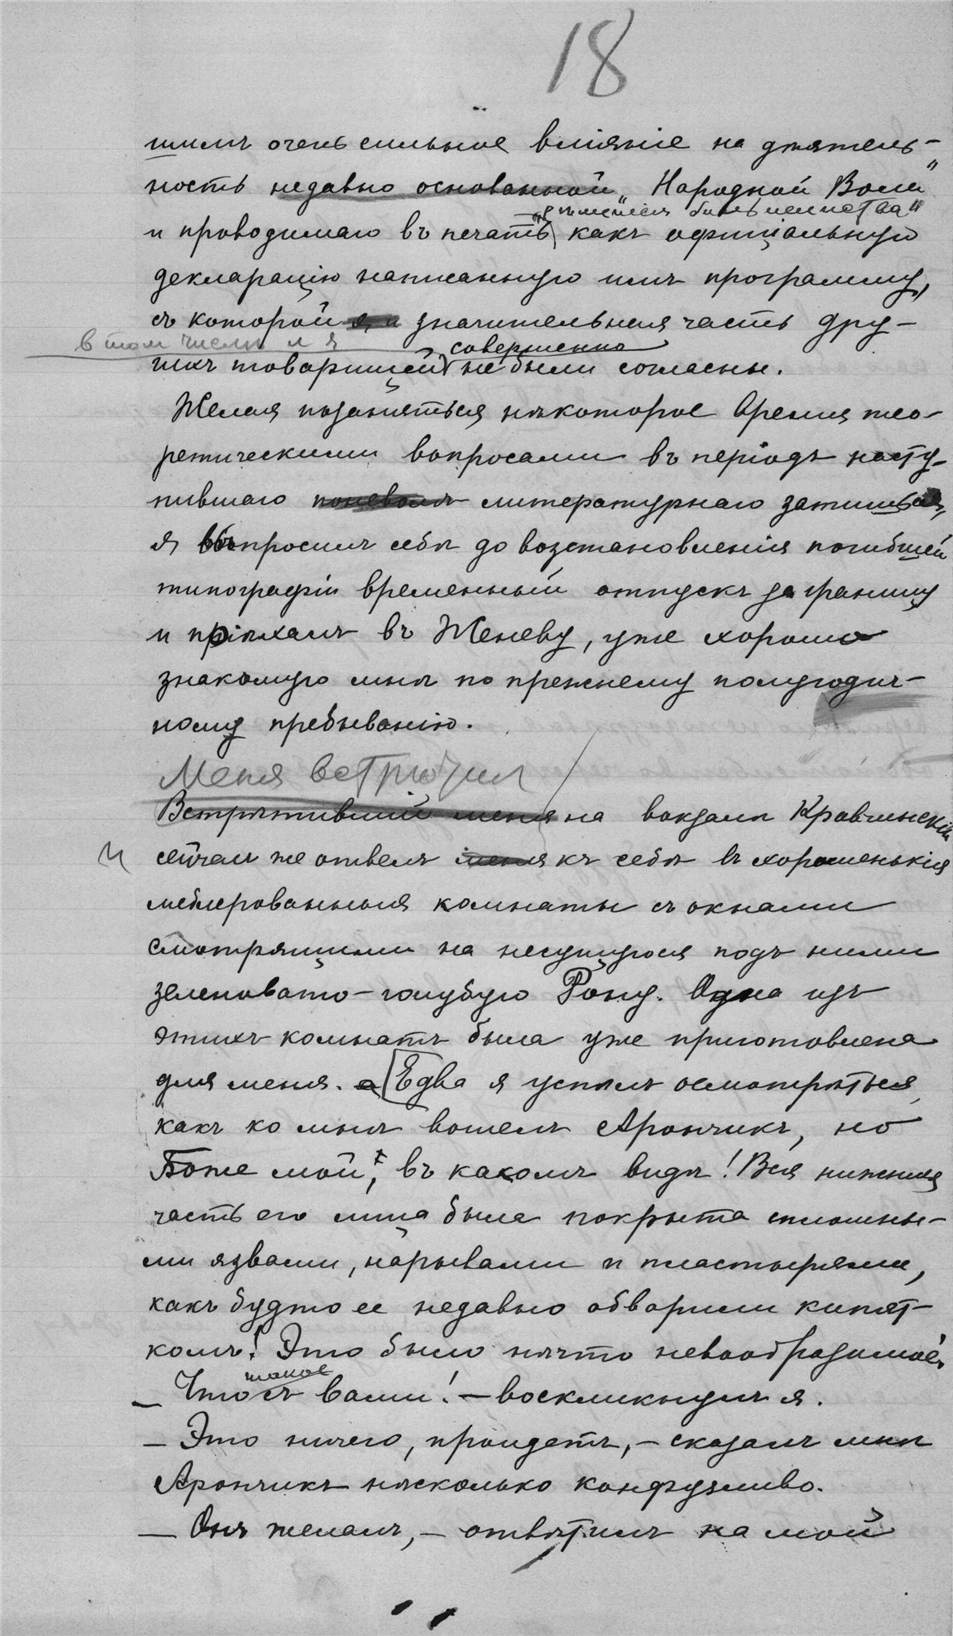 18
шимъ очень сильное вліяніе на дѣятель-
ность недавно основанной „Народной Воли"
большинства"
и проводимаго въ печать какъ официальную
декларацію написанную имъ программу,
съ которой значительная часть дру-
в том числе и я
совершенно
гихъ товарищей не были согласны.
Желая позаняться нѣкоторое время тео-
ретическими вопросами въ періодъ насту-
пившаго поневолѣ литературнаго затишья,
я выпросилъ себѣ до возстановленія погибшей
типографіи временный отпускъ за границу
и пріѣхалъ въ Женеву, уже хорошо
знакомую мнѣ по прежнему полугодич-
ному пребыванію.
Меня встрѣтил
Встрѣтившій меня на вокзалѣ Кравчинскій
и сейчасъ же отвелъ меня къ себѣ въ хорошенькія
меблированныя комнаты съ окнами
смотрящими на несущуюся подъ ними
зеленовато-голубую Рону. Одна изъ
этихъ комнатъ была уже приготовлена
для меня. а Едва я успѣлъ осмотрѣться,
какъ ко мнѣ вошелъ Арончикъ, но
Боже мой, въ какомъ видѣ! Вся нижняя
часть его лица была покрыта сплошны-
ми язвами, нарывами и пластырями,
какъ будто ее недавно обварили кипят-
комъ! Это было нѣчто невообразимое.
такое
— Что съ вами! — воскликнулъ я.
— Это ничего, пройдетъ, — сказалъ мнѣ
Арончикъ нѣсколько конфузливо.
— Онъ желалъ, — отвѣтилъ на мой